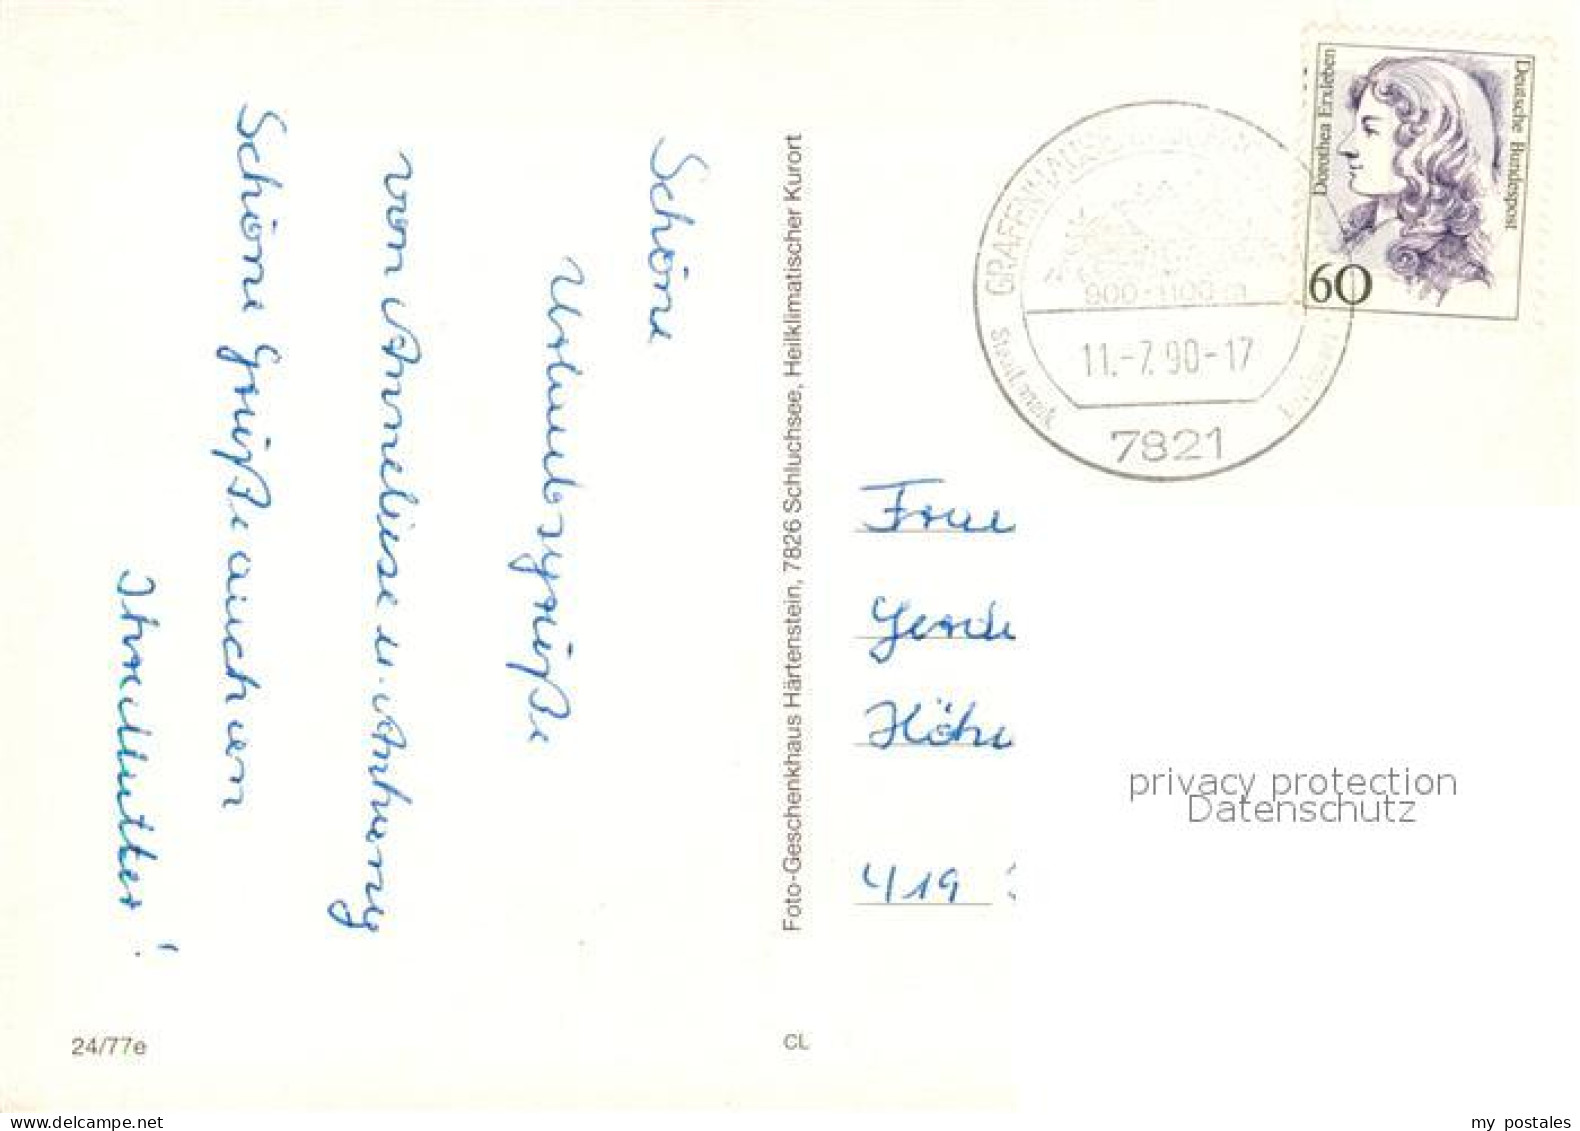 Schöne
Urlaubsgrüße
von Anneliese u. Anhang
Schöne Grüße auch an
Ihre Mutter!
24/77e
Foto-Geschenkhaus Härtenstein, 7826 Schluchsee, Heilklimatischer Kurort
CL
Dorothea Erxleben
Deutsche Bundespost
60
GRAFENHAUSEN
900-1100 m
11.-7.90-17
Staatl. anerk.
7821
Frau
Gerda
Höh
419
privacy protection
Datenschutz
https://www.delcampe.net
my_postales